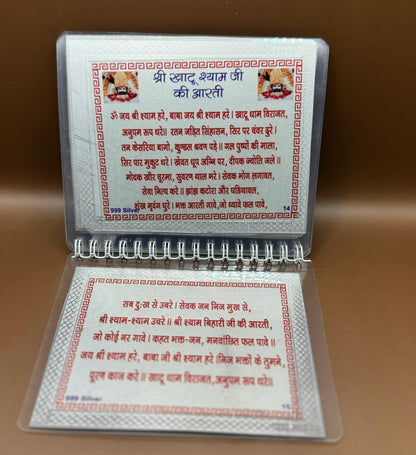 श्री खाटू श्याम जी
की आरती
ॐ जय श्री श्याम हरे, बाबा जय श्री श्याम हरे । खाटू धाम विराजत,
अनुपम रूप धरे॥ रतन जड़ित सिंहासन, सिर पर चंवर ढुरे ।
तन केसरिया बागो, कुण्डल श्रवण पड़े ॥ गल पुष्पों की माला,
सिर पार मुकुट धरे । खेवत धूप अग्नि पर, दीपक ज्योति जले ॥
मोदक खीर चूरमा, सुवरण थाल भरे । सेवक भोग लगावत,
सेवा नित्य करे ॥ झांझ कटोरा और घडियावल,
शंख मृदंग घुरे । भक्त आरती गावे, जो ध्यावे फल पावे,
999 Silver 14
सब दुःख से उबरे । सेवक जन निज मुख से,
श्री श्याम-श्याम उचरे ॥ श्री श्याम बिहारी जी की आरती,
जो कोई नर गावे । कहत भक्त-जन, मनवांछित फल पावे ॥
जय श्री श्याम हरे, बाबा जी श्री श्याम हरे ।निज भक्तो के तुमने,
पूरण काज करे ॥ खाटू धाम विराजत,अनुपम रूप धरे॥
999 Silver 15